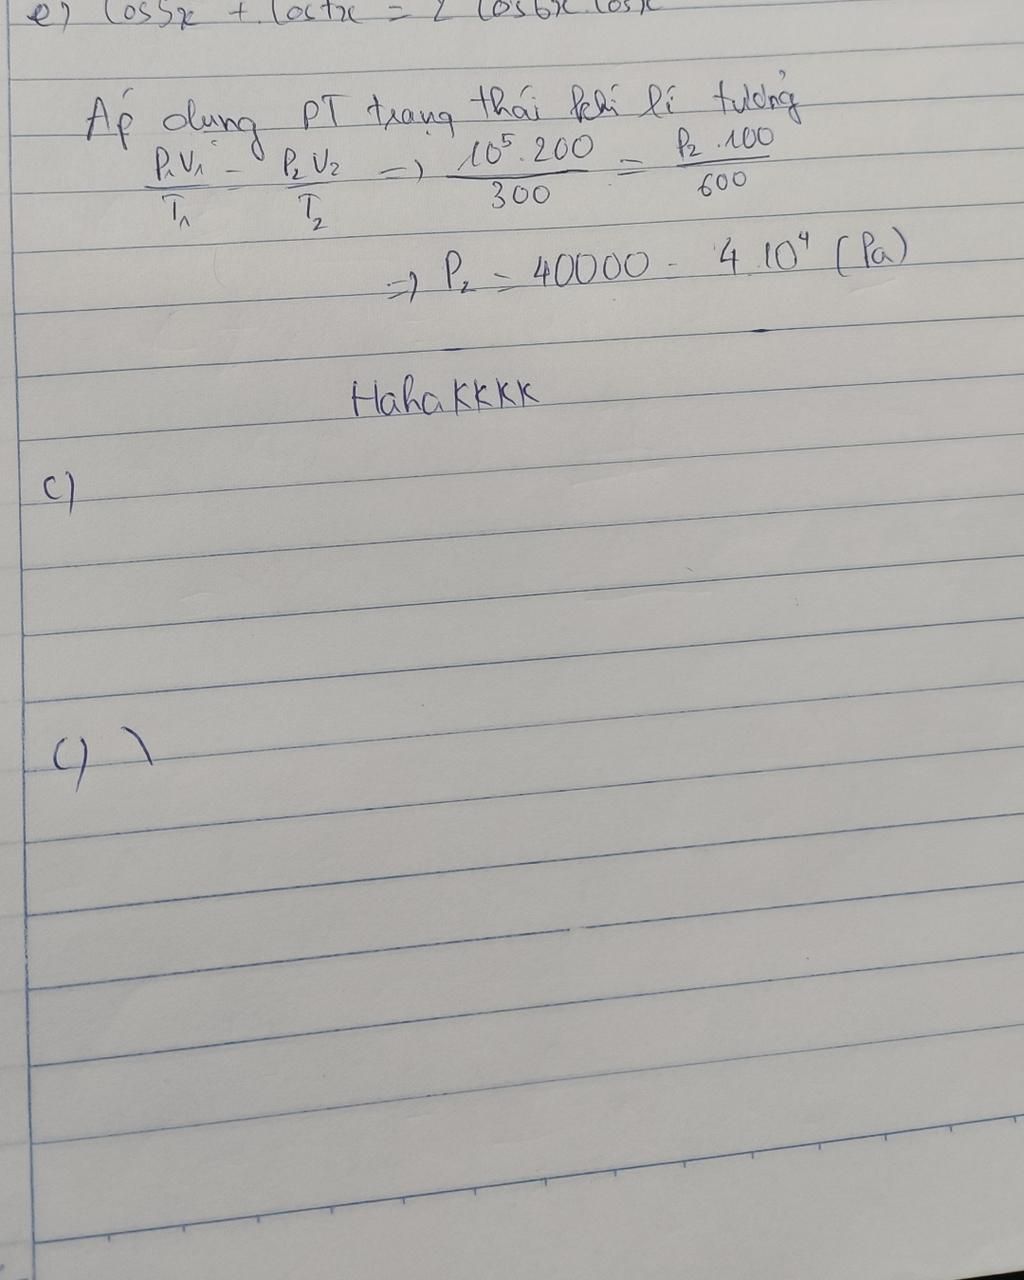 e) Cos5x + Cos7x = 2 Cos6x.Cosx
Áp dụng PT trạng thái khí lí tưởng
P₁V₁/T₁ = P₂V₂/T₂ => 10⁵.200/300 = P₂.100/600
=> P₂ = 40000 = 4.10⁴ (Pa)
HahaKKKK
c)
c)